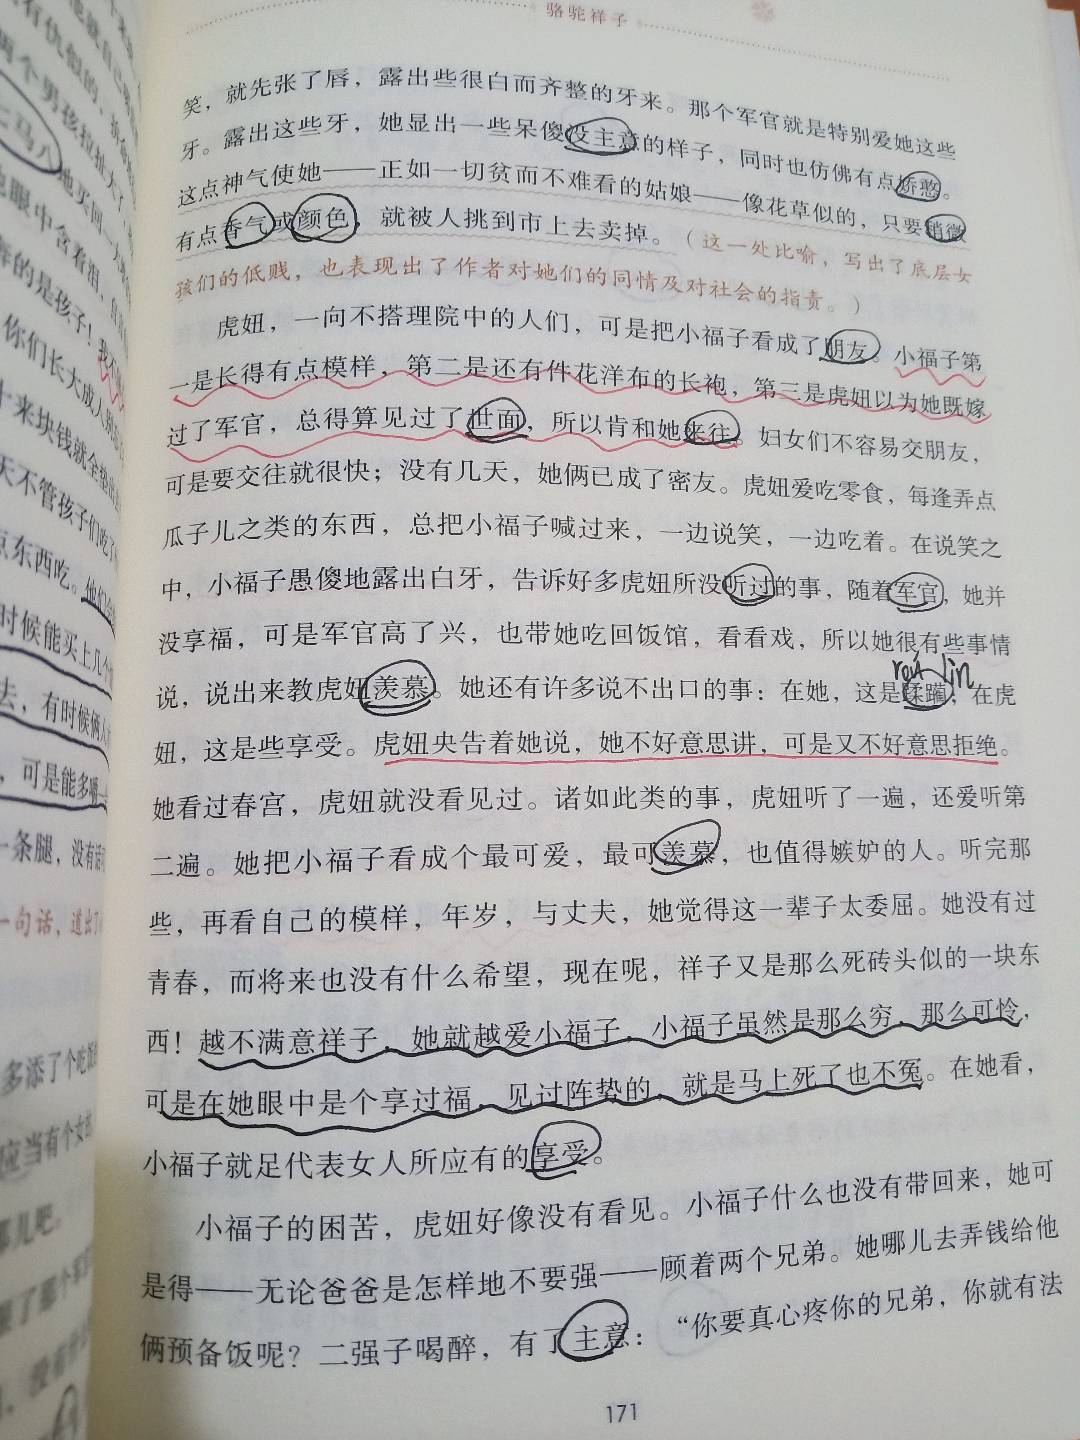 有仇似的，
两个男孩拉扯大了，
眼中含着泪，
的是孩子！我不
你们长大成人别
来块钱就全垫出
天不管孩子们吃了
点东西吃。他们
时候能买上几个
去，有时候俩人
，可是能多嚼
一条腿，没有
一句话，道出了
多添了个吃饭
应当有个女
那儿吧。
骆驼祥子
笑，就先张了唇，露出些很白而齐整的牙来。那个军官就是特别爱她这些
牙。露出这些牙，她显出一些呆傻没主意的样子，同时也仿佛有点娇憨。
这点神气使她——正如一切贫而不难看的姑娘——像花草似的，只要稍微
有点香气或颜色，就被人挑到市上去卖掉。（这一处比喻，写出了底层女
孩们的低贱，也表现出了作者对她们的同情及对社会的指责。）
虎妞，一向不搭理院中的人们，可是把小福子看成了朋友。小福子第
一是长得有点模样，第二是还有件花洋布的长袍，第三是虎妞以为她既嫁
过了军官，总得算见过了世面，所以肯和她来往。妇女们不容易交朋友，
可是要交往就很快；没有几天，她俩已成了密友。虎妞爱吃零食，每逢弄点
瓜子儿之类的东西，总把小福子喊过来，一边说笑，一边吃着。在说笑之
中，小福子愚傻地露出白牙，告诉好多虎妞所没听过的事，随着军官，她并
没享福，可是军官高了兴，也带她吃回饭馆，看看戏，所以她很有些事情
rou lin
说，说出来教虎妞羡慕。她还有许多说不出口的事：在她，这是蹂躏；在虎
妞，这是些享受。虎妞央告着她说，她不好意思讲，可是又不好意思拒绝。
她看过春宫，虎妞就没看见过。诸如此类的事，虎妞听了一遍，还爱听第
二遍。她把小福子看成个最可爱，最可羡慕，也值得嫉妒的人。听完那
些，再看自己的模样，年岁，与丈夫，她觉得这一辈子太委屈。她没有过
青春，而将来也没有什么希望，现在呢，祥子又是那么死砖头似的一块东
西！越不满意祥子，她就越爱小福子，小福子虽然是那么穷，那么可怜，
可是在她眼中是个享过福，见过阵势的，就是马上死了也不冤。在她看，
小福子就足代表女人所应有的享受。
小福子的困苦，虎妞好像没有看见。小福子什么也没有带回来，她可
是得——无论爸爸是怎样地不要强——顾着两个兄弟。她哪儿去弄钱给他
俩预备饭呢？二强子喝醉，有了主意：“你要真心疼你的兄弟，你就有法
171